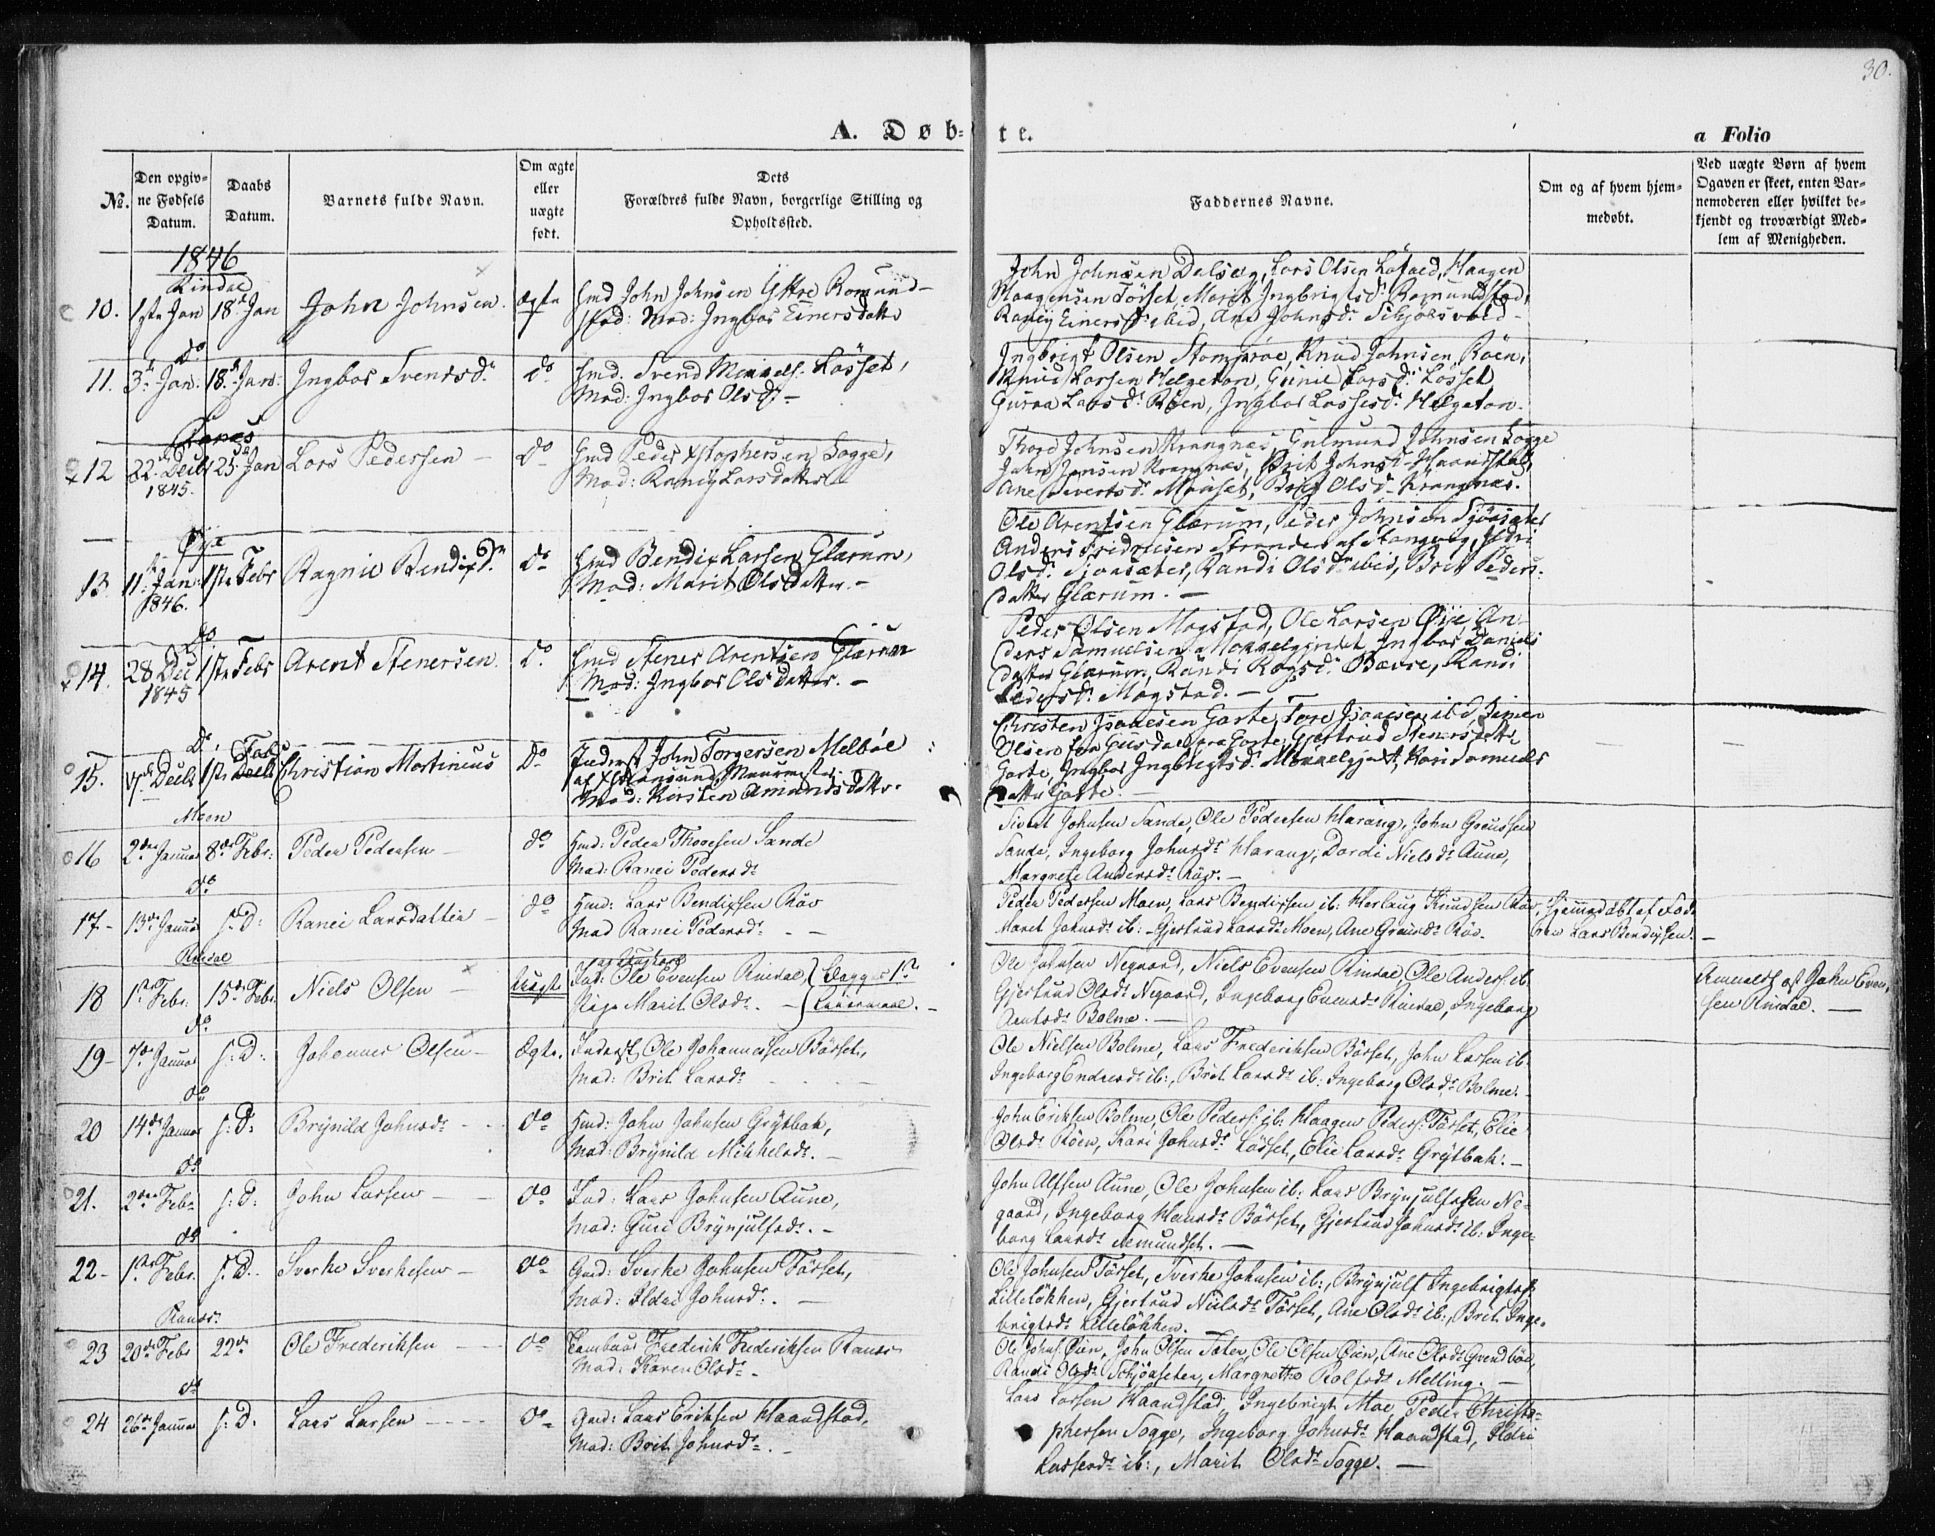 30.
A. Døb-
te.
a Folio
No.
Den opgiv-
ne Fødsels
Datum.
Daabs
Datum.
Barnets fulde Navn.
Om ægte
eller
uægte
født.
Dets
Forældres fulde Navn, borgerlige Stilling og
Opholdssted.
Faddernes Navne.
Om og af hvem hjem-
medøbt.
Ved uægte Børn af hvem
Opgaven er skeet, enten Bar-
nemoderen eller hvilket be-
kjendt og troværdigt Med-
lem af Menigheden.
1846
Rindal
10. 1ste Jan 18de Jan John Johnsen. Ægte Gmd John Johnsen Yttre Romund-
stad: Mod: Ingbor Einersdatter
John Johnsen Dalsegg, Lars Olsen Haagen
Haagensen Törset, Marit Ingbrigtsdr Romundstad,
Raney Einersdr ibid, Ane Johnsdr
Do
11. 3de Jan. 18de Jan: Ingbor Svendsdr Do Gmd. Svend Mikkels. Lösset,
Mod: Ingbor Olsdr —
Ingbrigt Olsen Knud Johnsen Röen,
Knud Larsen Helgeton, Larsdr Lösset
Guroa Larsdr Röen, Ingbor Lassesdr Helgeton.
Ranes
12 22. Decbr 25. Jan Lars Pedersen — Do Gmd Peder Xstophersen Sogge,
1845. Mod: Raney Larsdatter
Thore Johnsen Krangnæs, Gudmund Johnsen Sogge
John Jonsen Krangnæs, Brit Johnsdr Haandstad,
Ane Sivertsdr Brit Olsdr Krangnæs.
Øye
13. 11. Jan: 1ste Febr Ragnil Bendixdr. Do Gmd Bendix Larsen Glærum,
1846. Mod: Marit Olsdatter. —
Ole Arentsen Glærum, Peder Johnsen Sjöasæter
Anders Fredriksen Stranden af Stangvig,
Olsdr Sjöasæter, Randi Olsdr ibid, Brit Peders-
datter Glærum. —
Do
14. 28 Dec 1ste Febr Arent Stenersen. Do. Gmd Stener Arentsen Glærum
1845 Mod: Ingbor Olsdatter. —
Peder Olsen Mogstad, Ole Larsen Øye, An-
ders Samuelsen Ingbor Daniels
datter Glærum, Randi Bævre, Randi
Pedersdr Mogstad. —
Do. Febr
15. Decbr 1ste Decbr Christian Martinius Do Inderst John Torgersen Melböe
af Xstiansund Muurmester
Mod: Kirsten Amundsdatter.
Christen Isaacsen Garte, Tore Isaacsen ibid, Simen
Olsen Garte, Gjertrud Stenersdatter
Garte, Ingbor Ingbrigtsdr Mokkelgjert, Kari Samuels
datter Garte. —
Moen
16 2den Januar 8de Febr: Peder Pedersen — do Gmd: Peder Thoresen Sande
Mod: Ranei Pedersdr
Sivert Johnsen Sande, Ole Pedersen Harang, John
Sande, Ingeborg Johnsdr Harang, Dordi Nielsdr Aune,
Margrete Andersdr Röv. —
do
17- 13de Januar s: D: Ranei Larsdatter — do Gmd: Lars Bendixsen Röv
Mod Ranei Pedersdr — —
Peder Pedersen Moen, Lars Bendixsen ib: Herlaug Knudsen Röv,
Marit Johnsdr ib: Gjertrud Larsdr Moen, Ane Röv.
Hjemmedøbt af Fad-
eren Lars Bendixsen. —
Rindal
18 1ste Febr. 15de Febr. Niels Olsen — Uægte Fad: Ole Evensen Rindal Begges 1ste
Pige Marit Olsdr. — Leiermaal. —
Ole Johnsen Negaard, Niels Evensen Rindal, Ole Anders. ib.
Gjertrud Olsdr Negaard, Ingeborg Evensdr Rindal, Ingeborg
Arntsdr Bolme. —
Anmeldt af John Even-
sen Rindal. —
do
19- 7de Januar s: D: Johannes Olsen — Ægte. Inderst Ole Johannessen Börset,
Mod: Brit Larsdr
Ole Nielsen Bolme, Lars Frederiksen Börset, John Larsen ib:
Ingeborg Endresdr ib:, Brit Larsdr ib: Ingeborg Olsdr Bolme.
do
20 14de Januar s: D: Brynild Johnsdr do Gmd: John Johnsen Grytbak,
Mod: Brynild Mikkelsdr. —
John Eriksen Bolme, Ole Peders. ib: Haagen Peders. Törset, Elie
Olsdr Röen, Kari Johnsdr Lösset, Elie Larsdr Grytbak. —
do
21. 2den Febr. s: D: John Larsen — do Fad: Lars Johnsen Aune,
Mod: Guri Brynjulfsdr. —
John Alfsen Aune, Ole Johnsen ib: Lars Brynjulfsen Ne-
gaard, Ingeborg Hansdr Börset, Gjertrud Johnsdr ib: Inge-
borg Larsdr —
do
22- 1ste Febr. s: D. Sverke Sverkesen — do Gmd: Sverke Johnsen Törset,
Mod: Ildri Johnsdr. —
Ole Johnsen Törset, Sverke Johnsen ib:, Brynjulf Ingebrigts.
Lillelökken, Gjertrud Nielsdr Törset, Ane Olsdr ib:, Brit Inge-
brigtsdr Lillelökken. —
Ranes.
23 20de Febr 22de Ole Frederiksen do Frederik Frederiksen Ranes
Mod: Karen Olsdr.
Ole Johns. Öien, John Olsen Sæter, Ole Olsen Öien, Ane Olsdr
Randi Olsdr Schjöasæter, Margrethe Melling. —
do
24 26de Januar s: D. Lars Larsen do Gmd: Lars Eriksen Haandstad,
Mod: Brit Johnsdr. —
Lars Larsen Haandstad, Ingebrigt Moe, Peder Christo-
phersen Sogge, Ingeborg Johnsdr Haandstad, Ildri
Lassesdr ib:, Marit Olsdr Sogge. —